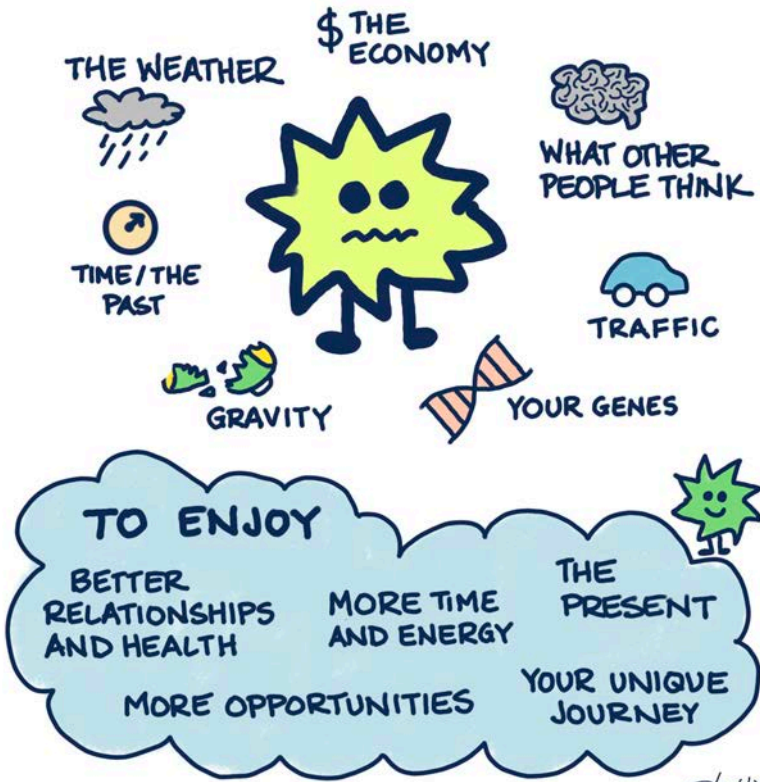 $ THE
ECONOMY
THE WEATHER
WHAT OTHER
PEOPLE THINK
TIME/THE
PAST
TRAFFIC
GRAVITY
YOUR GENES
TO ENJOY
BETTER
RELATIONSHIPS
AND HEALTH
MORE TIME
AND ENERGY
THE
PRESENT
MORE OPPORTUNITIES
YOUR UNIQUE
JOURNEY